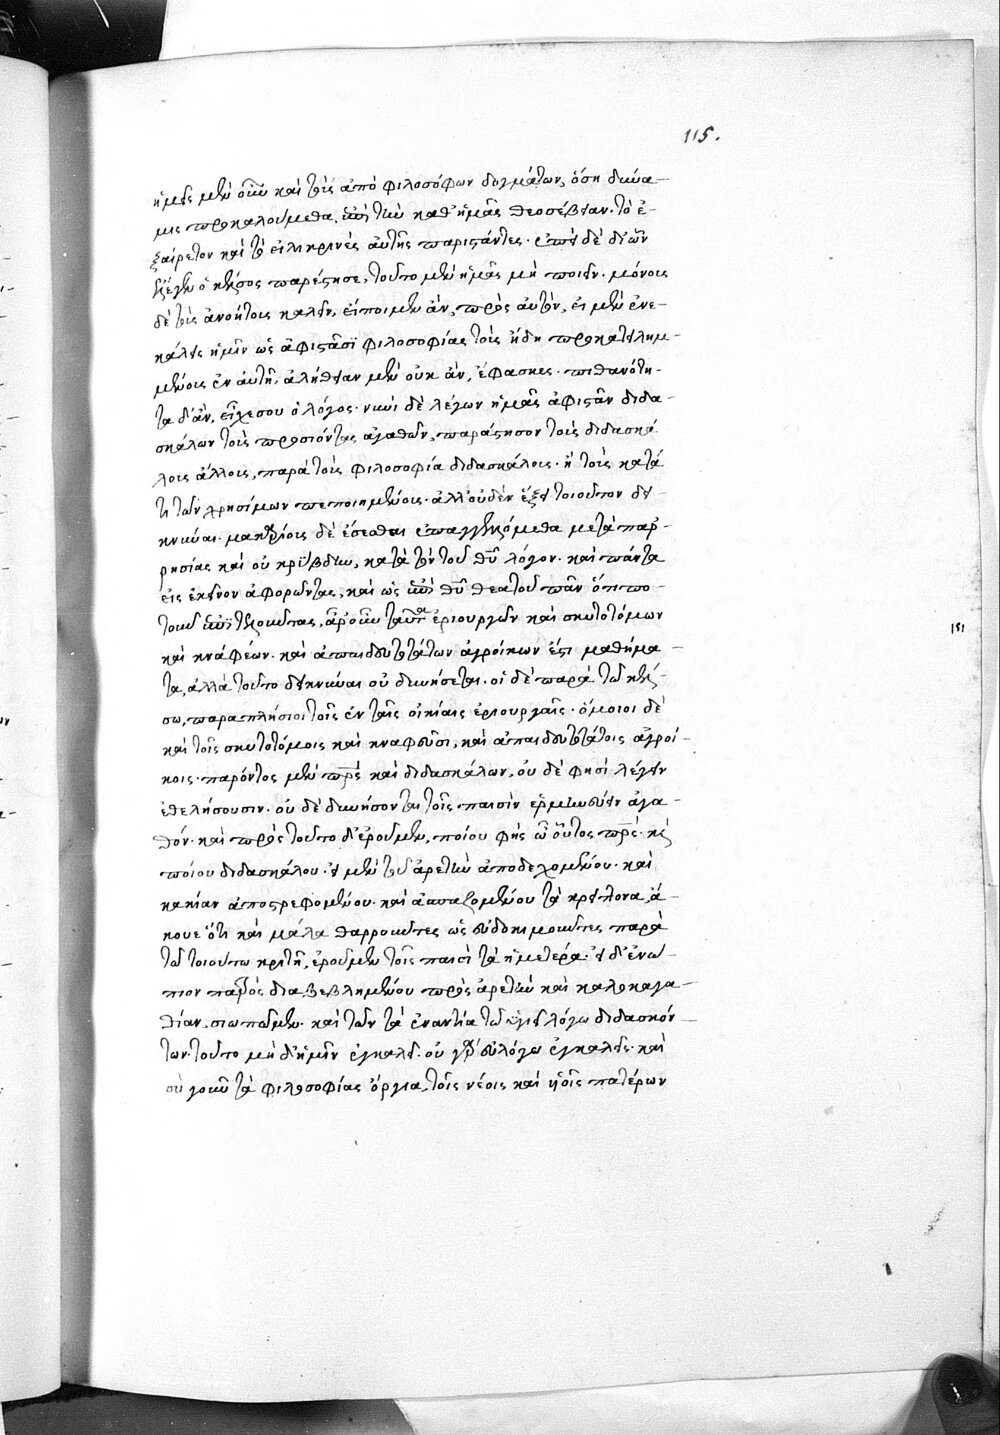 115.
ἡμεῖς μὲν οὖν καὶ τοῖς ἀπὸ φιλοσόφων δογμάτων, ὅση δύνα-
μις προκαλούμεθα ἐπὶ τὴν καθ' ἡμᾶς θεοσέβειαν. τὸ ἐ-
ξαίρετον καὶ τὸ εἰλικρινὲς αὐτῆς παριστάντες. ἐπεὶ δὲ δι' ὧν
ἔλεγεν ὁ κέλσος παρέστησε, τοῦτο μὲν ἡμᾶς μὴ ποιεῖν. μόνους
δὲ τοὺς ἀνοήτους καλεῖν, εἴποιμεν ἂν, πρὸς αὐτὸν, εἰ μὲν ἐνε-
κάλεις ἡμῖν ὡς ἀφιστᾶσϊ φιλοσοφίας τοὺς ἤδη προκατειλημ-
μένους ἐν αὐτῇ, ἀλήθειαν μὲν οὐκ ἂν, ἔφασκες. πιθανότη-
τα δ' ἂν, εἶχέ σου ὁ λόγος. νυνὶ δὲ λέγων ἡμᾶς ἀφιστᾶν διδα-
σκάλων τοὺς προσιόντας ἀγαθῶν, παράστησον τοὺς διδασκά
λους ἄλλους, παρὰ τοὺς φιλοσοφία διδασκάλους. ἢ τοὺς κατά
τι τῶν χρησίμων πεποιημένους. ἀλλ' οὐδὲν ἕξει τοιοῦτον δει
κνύναι. μακαρίους δὲ ἔσεσθαι ἐπαγγελλόμεθα μετὰ παρ-
ρησίας καὶ οὐ κρύβδην, κατὰ τὸν τοῦ θυ λόγον. καὶ πάντα
εἰς ἐκεῖνον ἀφορῶντας, καὶ ὡς ἐπὶ θυ θεατοῦ πᾶν ὅτι πο-
τοῦν ἐπϊτελοῦντας, ἆρ' οὖν ταῦτα ἐριουργῶν καὶ σκυτοτόμων
καὶ κναφέων. καὶ ἀπαιδευτοτάτων ἀγροίκων ἐστὶ μαθήμα-
τα, ἀλλὰ τοῦτο δεικνύναι οὐ δυνήσεται. οἱ δὲ παρὰ τῶ κέλ-
σω, παραπλήσιοι τοῖς ἐν ταῖς οἰκίαις ἐριουργοῖς. ὅμοιοι δὲ
καὶ τοῖς σκυτοτόμοις καὶ κναφεῦσι, καὶ ἀπαιδευτοτάτοις ἀγροί-
κοις. παρόντος μὲν πρς καὶ διδασκάλων, οὐ δέ φησὶ λέγειν
ἐθελήσουσιν. οὐ δὲ δυνήσονται τοῖς παισὶν ἑρμηνεύειν ἀγα-
θόν. καὶ πρὸς τοῦτο δ' ἐροῦμεν, ποίου φὴς ὦ οὗτος πρς. καὶ
ποίου διδασκάλου. εἰ μὲν τοῦ ἀρετὴν ἀποδεχομένου. καὶ
κακίαν ἀποστρεφομένου. καὶ ἀσπαζομένου τὰ κρείττονα, ἄ-
κουε ὅτι καὶ μάλα θαρροῦντες ὡς εὐδοκιμοῦντες παρὰ
τῶ τοιούτω κριτῇ, ἐροῦμεν τοῖς παισὶ τὰ ἡμέτερα. εἰ δ' ἐνώ-
πιον πατρὸς διαβεβλημένου πρὸς ἀρετὴν καὶ καλοκαγα-
θίαν, σιωπῶμεν. καὶ τῶν τὰ ἐναντία τῶ ὑγιεῖ λόγω διδασκόν-
των. τοῦτο μὴ δ' ἡμῖν ἐγκάλει. οὐ γὰρ εὐλόγω ἐγκαλεῖς. καὶ
σὺ γοῦν τὰ φιλοσοφίας ὄργια, τοῖς νέοις καὶ υἱοῖς πατέρων
151